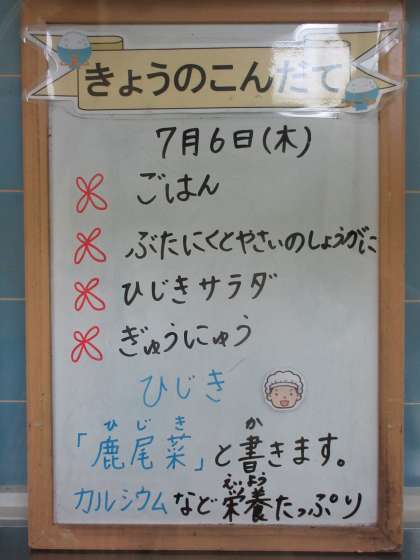 きょうのこんだて
7月6日(木)
ごはん
ぶたにくとやさいのしょうがに
ひじきサラダ
ぎゅうにゅう
ひじき
ひじき か
「鹿尾菜」と書きます。
えいよう
カルシウムなど栄養たっぷり